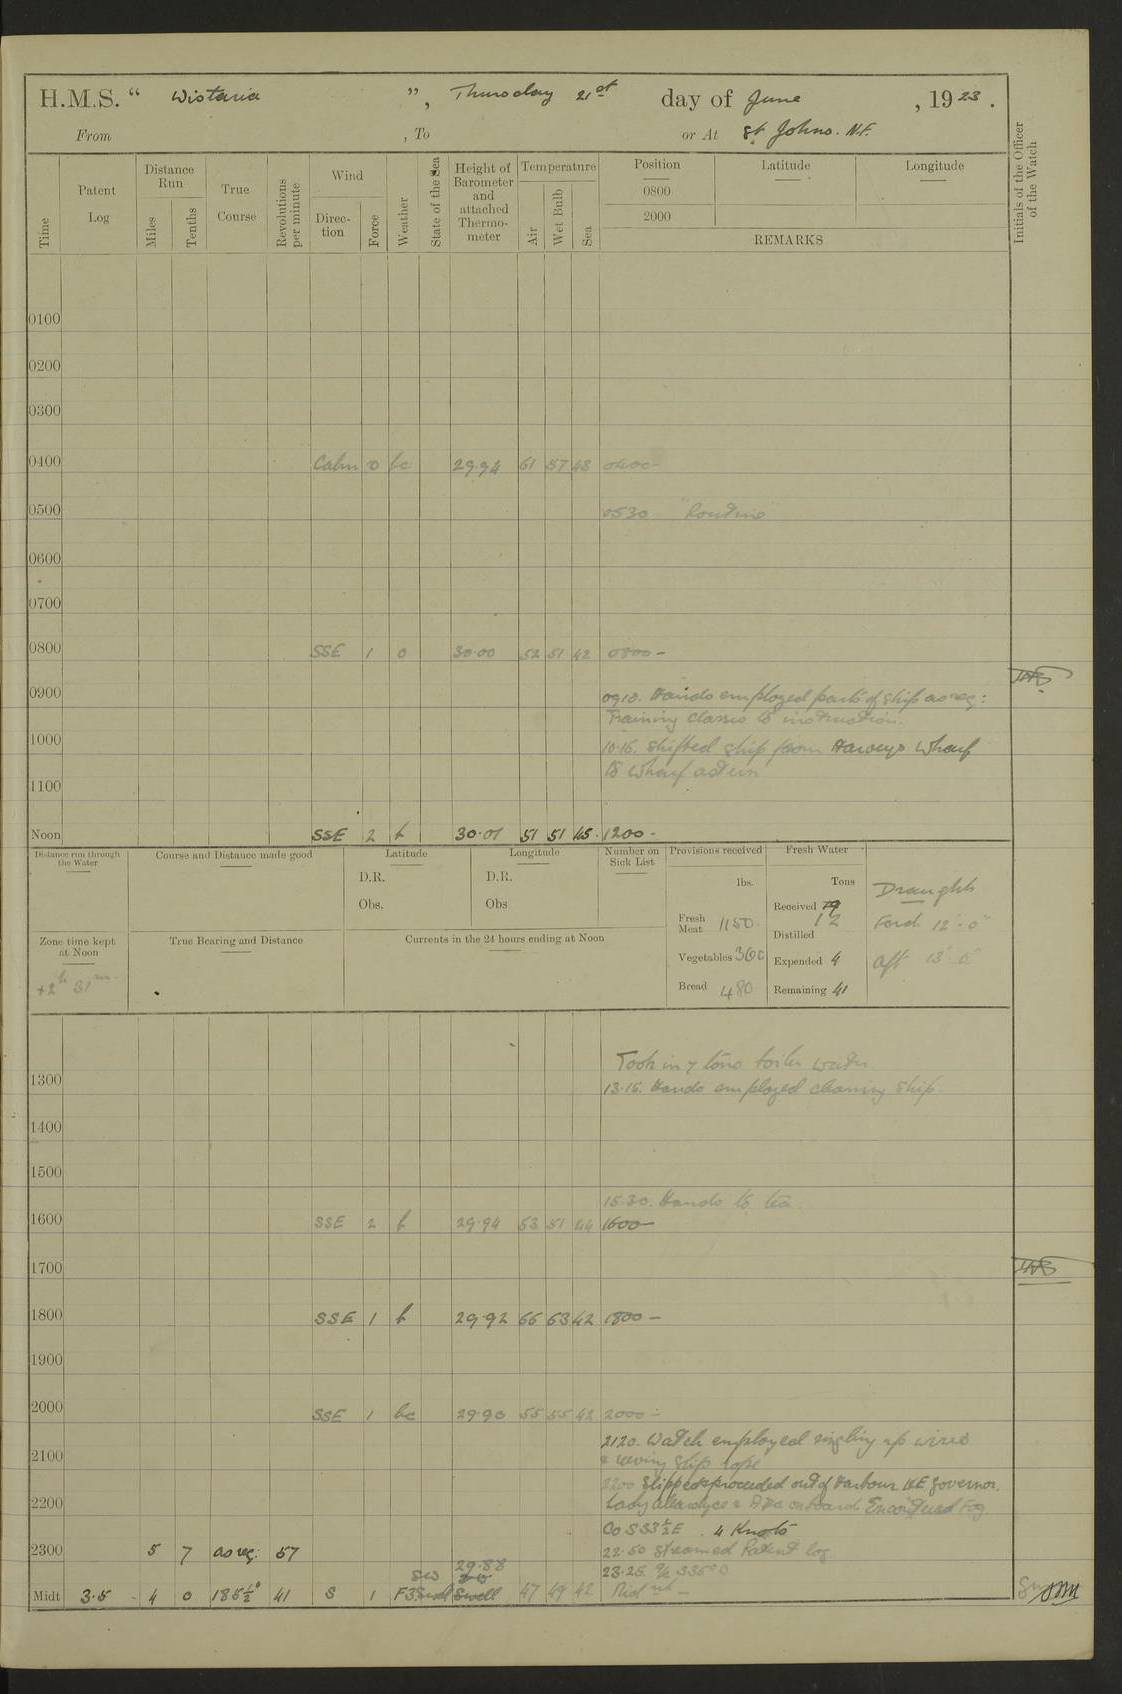 H.M.S. “ Wistaria ”, Thursday 21st day of June , 1923.
From , To or At St Johns. N.F.
Time
Patent Log
Distance Run
Miles
Tenths
True Course
Revolutions per minute
Wind
Direction
Force
Weather
State of the Sea
Height of Barometer and attached Thermometer
Temperature
Air
Wet Bulb
Sea
Position Latitude Longitude
0800
2000
REMARKS
Initials of the Officer of the Watch
0100
0200
0300
0400 Calm 0 bc 29.94 61 57 43 0400-
0500 0530 "Routine"
0600
0700
0800 SSE 1 0 30.00 52 51 42 0800-
0900
0910. Hands employed parts of ship as req:
Training classes to instruction.
1000 10.15. Shifted ship from Harveys Wharf
to wharf astern
1100
Noon SSE 2 f 30.01 51 51 45 1200-
Distance run through the Water
Course and Distance made good
Latitude
D.R.
Obs.
Longitude
D.R.
Obs
Number on Sick List
Provisions received
lbs.
Fresh Meat 1150
Vegetables 360
Bread 480
Fresh Water
Tons
Received 12
Distilled
Expended 4
Remaining 41
Draughts
Ford. 12'-0"
Aft 13'-6"
Zone time kept at Noon
+2h 31m
True Bearing and Distance
Currents in the 24 hours ending at Noon
Took in 7 tons boiler water
1300 13.15. Hands employed cleaning ship.
1400
1500
15.30. Hands to tea.
1600 SSE 2 f 29.94 53 51 44 1600-
1700
1800 SSE 1 f 29.92 66 63 42 1800-
1900
2000 SSE 1 bc 29.90 55 55 42 2000-
2120. Watch employed singling up wires
2100 & reeving slip rope
2200 Slipped & proceeded out of Harbour H.E Governor,
2200 Lady Allardyce & ADC on board. Encountered Fog
Co S33½E. 4 Knots
2300 5 7 as req: 57 22.50 Streamed Patent log
29.88 23.25 a/c 335°
Midt 3.5 4 0 185½° 41 S 1 F3 SW Swell 47 49 42 Midnt-